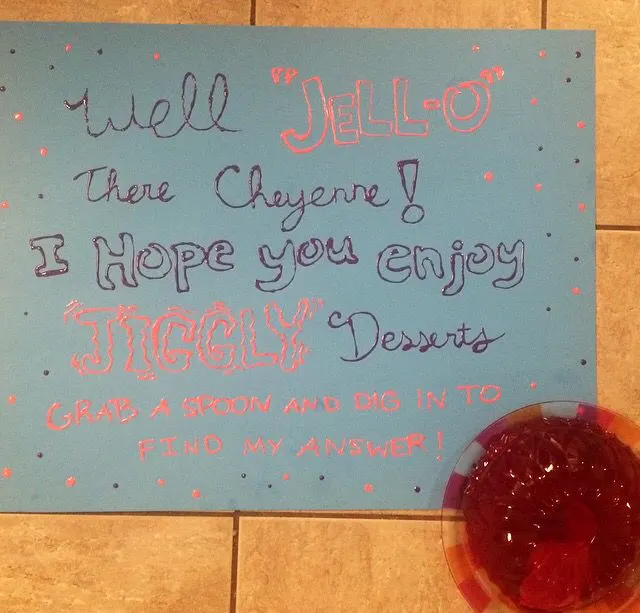 Well "JELL-O"
There Cheyenne!
I Hope you enjoy
"JIGGLY" Desserts
GRAB A SPOON AND DIG IN TO
FIND MY ANSWER!